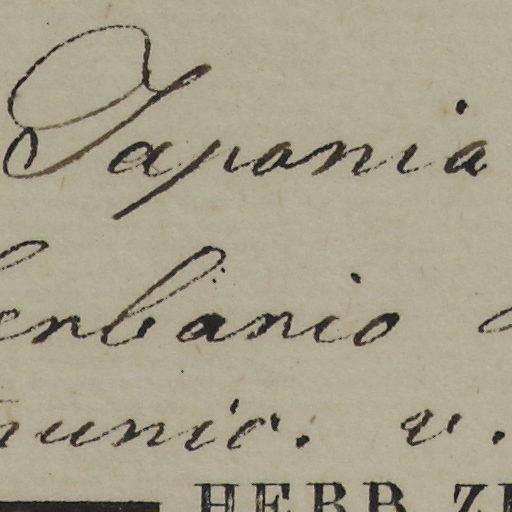 Japonia
erbario
unic. v.
HERB. Z